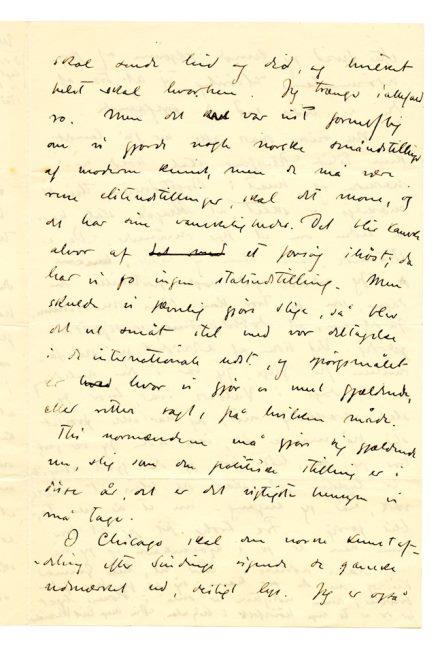 skal sende hid og did, og hvilket
helst skal hvorhen. Jeg trænger i alle fald
ro. Men det var vist fornuftig
om vi gjorde nogle norske småudstillinger
af moderne kunst, men de må være
rene eliteudstillinger, skal det mone, og
det har sine vanskeligheder. Det blir kanske
alvor af et forsøg i høst; da
har vi jo ingen statsudstilling. Men
skulde vi jævnlig gjøre slige, så blev
det vel småt stel med vor deltagelse
i de internationale udst., og spørgsmålet
er hvor vi gjør os mest gjældende,
eller rettere sagt, på hvilken måde.
Thi normændene må gjøre sig gjældende
nu, slig som den politiske stilling er i
disse år, det er det vigtigste hensyn vi
må tage.
O Chicago skal den norske kunstaf-
deling efter Sindings sigende se ganske
udmærket ud, deiligt lys. Jeg er også